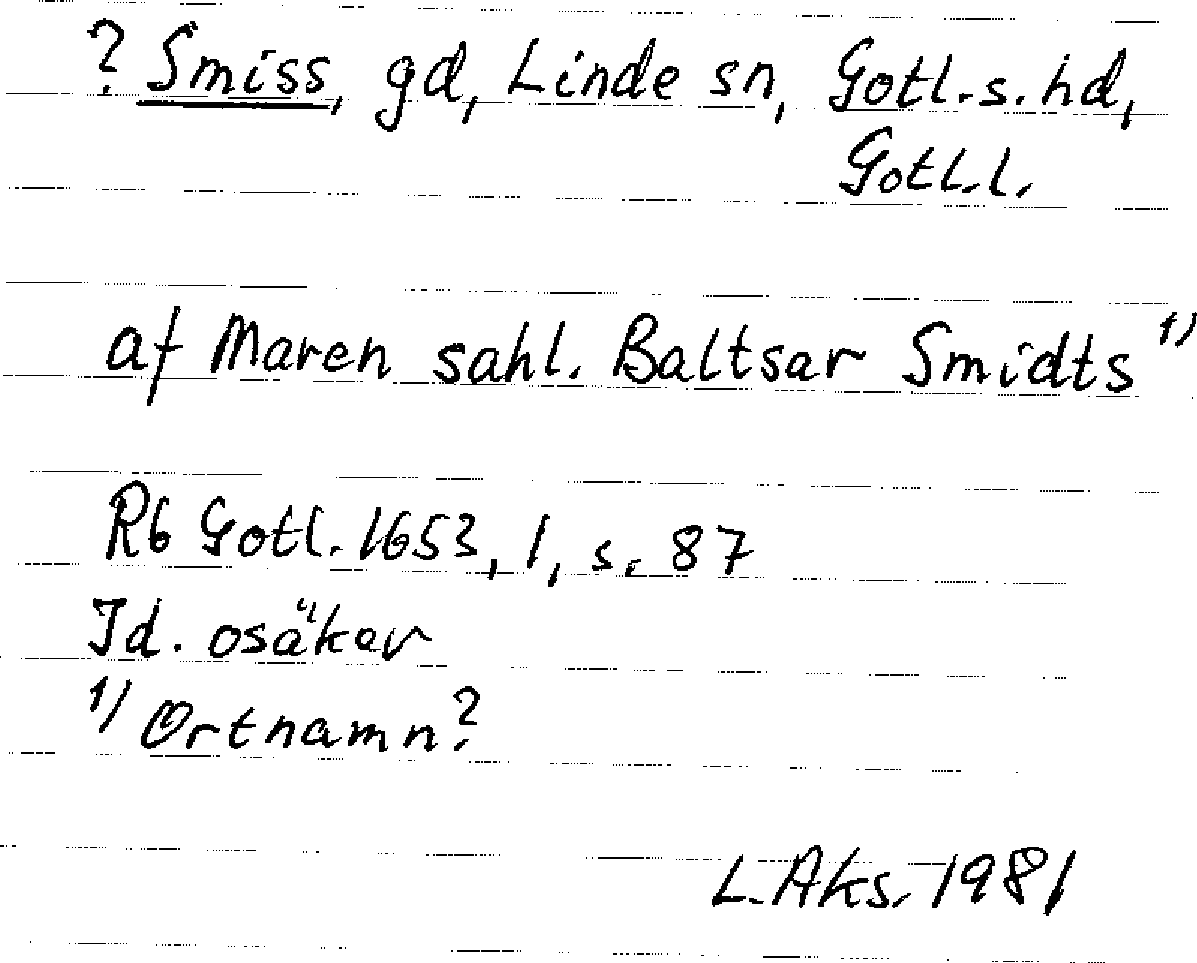 ? Smiss, gd, Linde sn, Gotl.s.hd,
Gotl.l.
af Maren sahl. Baltsar Smidts 1)
Rb Gotl. 1653, 1, s. 87
Id. osäker
1) Ortnamn?
L. Aks. 1981